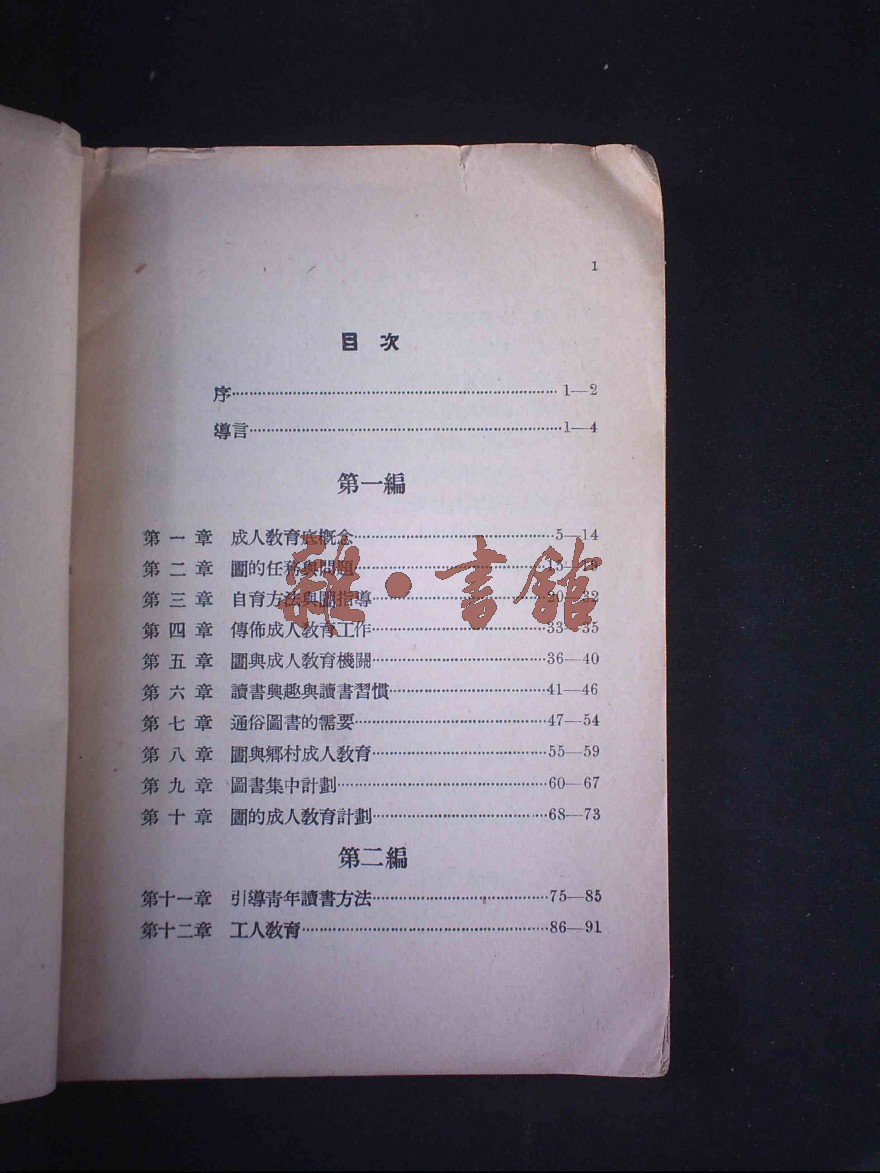 1
目次
序 1—2
導言 1—4
第一編
第一章 成人敎育底概念 5—14
第二章 圕的任務與問題 15—19
第三章 自育方法與圕指導 20—32
第四章 傳佈成人敎育工作 33—35
第五章 圕與成人敎育機關 36—40
第六章 讀書興趣與讀書習慣 41—46
第七章 通俗圖書的需要 47—54
第八章 圕與鄉村成人敎育 55—59
第九章 圖書集中計劃 60—67
第十章 圕的成人敎育計劃 68—73
第二編
第十一章 引導靑年讀書方法 75—85
第十二章 工人敎育 86—91
雜·書館